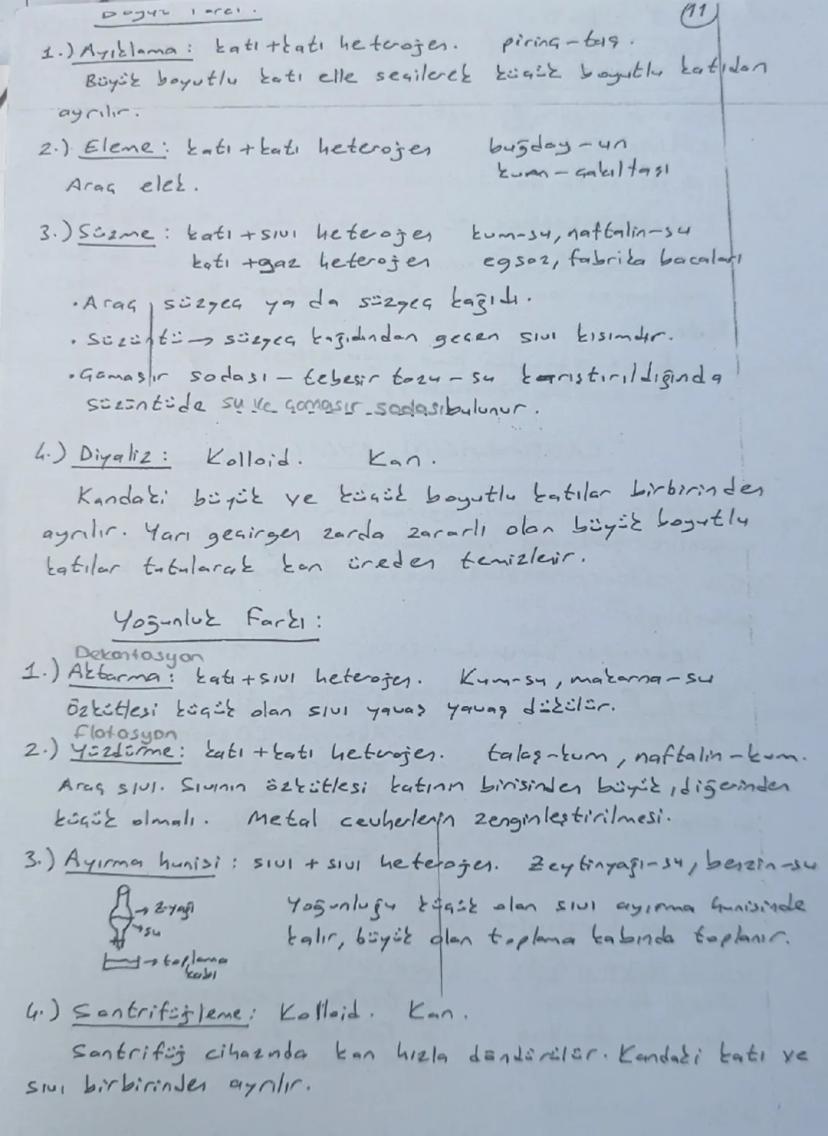 Boyut Farkı. 11
1.) Ayıklama: katı+katı heterojen. pirinç-taş.
Büyük boyutlu katı elle seçilerek küçük boyutlu katıdan
ayrılır.
2.) Eleme: katı+katı heterojen buğday-un
kum-çakıltası
Araç elek.
3.) Süzme: katı+sıvı heterojen kum-su, naftalin-su
katı+gaz heterojen egsoz, fabrika bacaları
• Araç süzgeç ya da süzgeç kağıdı.
• Süzüntü → süzgeç kağıdından geçen sıvı kısımdır.
• Çamaşır sodası - tebeşir tozu - su karıştırıldığında
süzüntüde su ve çamaşır sodası bulunur.
4.) Diyaliz: Kolloid. Kan.
Kandaki büyük ve küçük boyutlu katılar birbirinden
ayrılır. Yarı geçirgen zarda zararlı olan büyük boyutlu
katılar tutularak kan üreden temizlenir.
Yoğunluk Farkı:
Dekantasyon
1.) Aktarma: katı+sıvı heterojen. Kum-su, makarna-su
Özkütlesi küçük olan sıvı yavaş yavaş dökülür.
flotasyon
2.) Yüzdürme: katı+katı heterojen. talaş-kum, naftalin-kum.
Araç sıvı. Sıvının özkütlesi katının birisinden büyük, diğerinden
küçük olmalı. Metal cevherlerin zenginleştirilmesi.
3.) Ayırma hunisi: sıvı + sıvı heterojen. Zeytinyağı-su, benzin-su
→ z.yağı Yoğunluğu küçük olan sıvı ayırma hunisinde
→ su kalır, büyük olan toplama kabında toplanır.
→ toplama
kabı
4.) Santrifüjleme: Kolloid. Kan.
Santrifüj cihazında kan hızla döndürülür. Kandaki katı ve
sıvı birbirinden ayrılır.